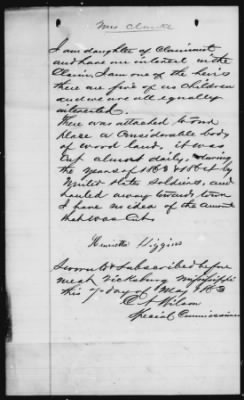 Mrs Clarke
I am daughter of Claimant
and have an interest in the
Claim. I am one of the heirs
there are five of us Children
and we are all equally
interested.
There was attached to our
place a Considerable body
of wood land, it was
Cut almost daily, during
the years of 1863 & 1864 by
United States Soldiers, and
hauled away towards town
I have no idea of the amount
that was Cut
Henrietta Higgins
Sworn to & Subscribed before
me at Vicksburg Mississippi
this 7 day of May 187
Wilson
Special Commissioner